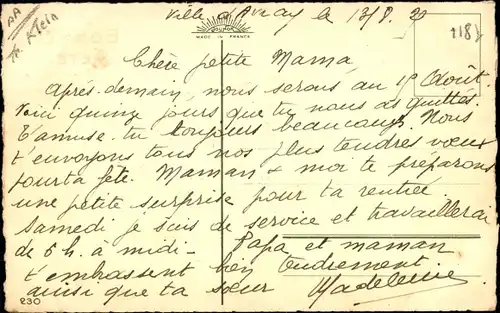 Ville d'Avray le 13/8.
118
AA
Th. Klein
MADE IN FRANCE
Chère petite Mama
Après-demain, nous serons au 15 Août.
Voici quinze jours que tu nous as quittés.
T'amuse. tu toujours beaucoup. Nous
t'envoyons tous nos plus tendres vœux
pour ta fête. Maman & moi te préparons
une petite surprise pour ta rentrée.
Samedi je suis de service et travaillerai
de 6 h. à midi - Papa et maman
t'embrassent bien tendrement
ainsi que ta sœur Madeleine
230